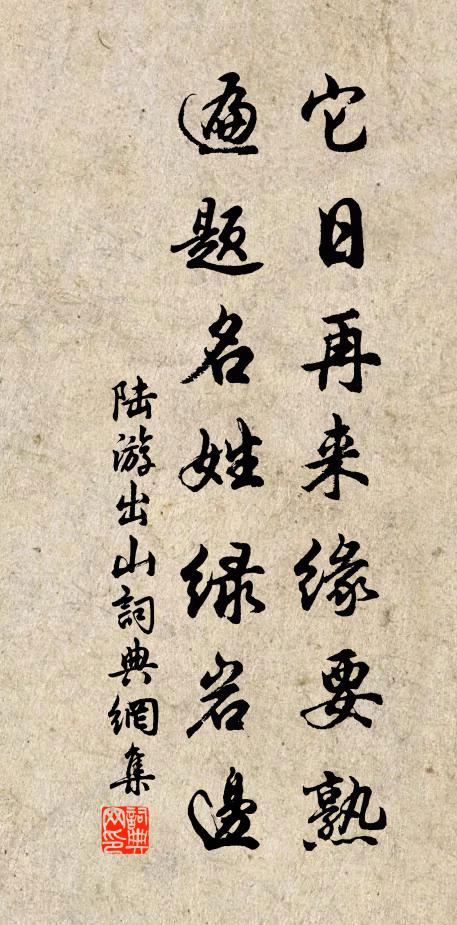 它日再来缘要熟
遍题名姓绿岩边
陆游出山詞典網集
詞典网印